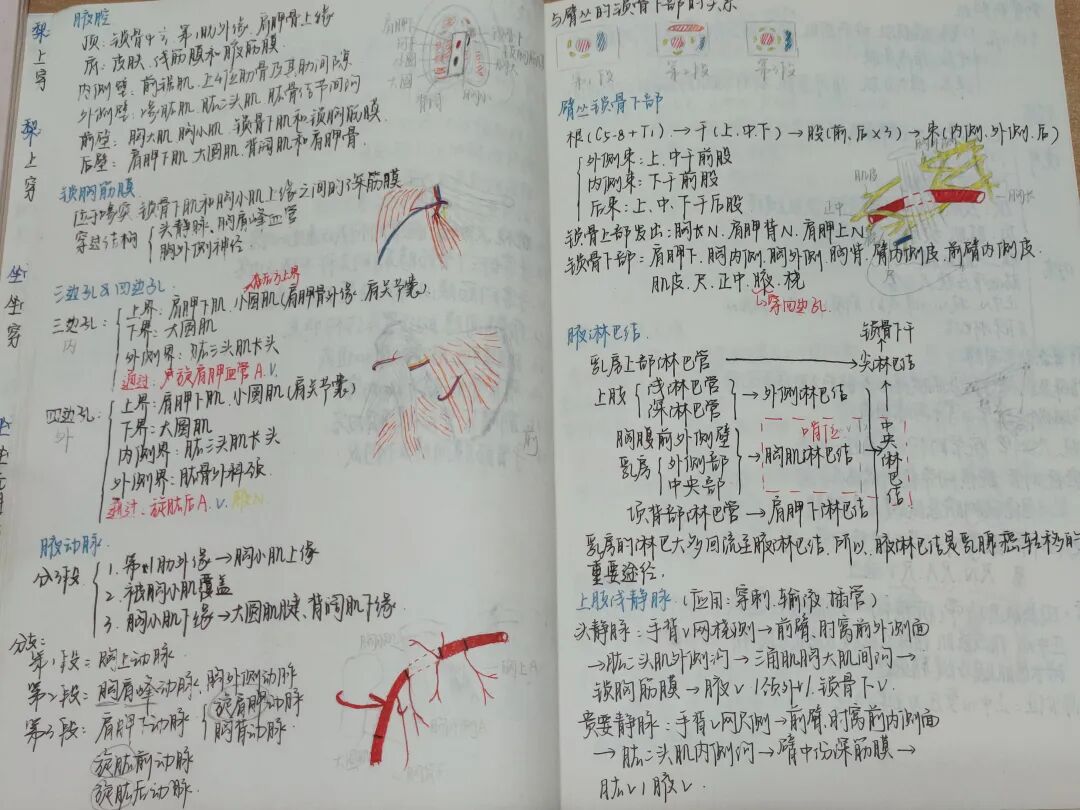 梨
上
穿
梨
上
穿
坐
坐
穿
腋腔
顶：锁骨中1/3，第1肋外缘，肩胛骨上缘
底：皮肤、浅筋膜和腋筋膜
内侧壁：前锯肌，上4位肋骨及其肋间隙
外侧壁：喙肱肌，肱二头肌，肱骨结节间沟
前壁：胸大肌，胸小肌，锁骨下肌和锁胸筋膜
后壁：肩胛下肌，大圆肌，背阔肌和肩胛骨
锁胸筋膜
位于喙突，锁骨下肌和胸小肌上缘之间的深筋膜
穿过结构
头静脉、胸肩峰血管
胸外侧神经
三边孔&四边孔
在后方上界
三边孔：
内
上界：肩胛下肌，小圆肌(肩胛骨外缘，肩关节囊)
下界：大圆肌
外侧界：肱三头肌长头
通过：旋肩胛血管A.V.
四边孔：
外
上界：肩胛下肌，小圆肌(肩关节囊)
下界：大圆肌
内侧界：肱三头肌长头
外侧界：肱骨外科颈
通过：旋肱后A.V. 腋N
前
腋动脉
分3段
1. 第1肋外缘→胸小肌上缘
2. 被胸小肌覆盖
3. 胸小肌下缘→大圆肌腱、背阔肌下缘
分支：
第1段：胸上动脉
第2段：胸肩峰动脉，胸外侧动脉
第3段：肩胛下动脉
旋肩胛动脉
胸背动脉
旋肱前动脉
旋肱后动脉
胸上A
与臂丛的锁骨下部的关系
第1段
第2段
第3段
臂丛锁骨下部
根(C5-8+T1)→干(上,中,下)→股(前,后×3)→束(内侧,外侧,后)
外侧束：上,中干前股
内侧束：下干前股
后束：上,中,下干后股
肌皮
正中
胸长
尺
锁骨上部发出：胸长N，肩胛背N，肩胛上N
锁骨下部：肩胛下,胸内侧,胸外侧,胸背,臂内侧皮,前臂内侧皮,
肌皮,尺,正中,腋,桡
↳穿四边孔
腋淋巴结
锁骨下干
乳房上部淋巴管→尖淋巴结
上肢
浅淋巴管
深淋巴管
→外侧淋巴结
胸腹前外侧壁
乳房
外侧部
中央部
→胸肌淋巴结
中央淋巴结
项背部淋巴管→肩胛下淋巴结
乳房的淋巴大多回流至腋淋巴结，所以，腋淋巴结是乳腺癌转移的
重要途径。
上肢浅静脉 (应用：穿刺、输液、插管)
头静脉：手背V网桡侧→前臂,肘窝前外侧面
→肱二头肌外侧沟→三角肌胸大肌间沟→
锁胸筋膜→腋V/颈外V/锁骨下V
贵要静脉：手背V网尺侧→前臂,肘窝前内侧面
→肱二头肌内侧沟→臂中份深筋膜→
肱V/腋V